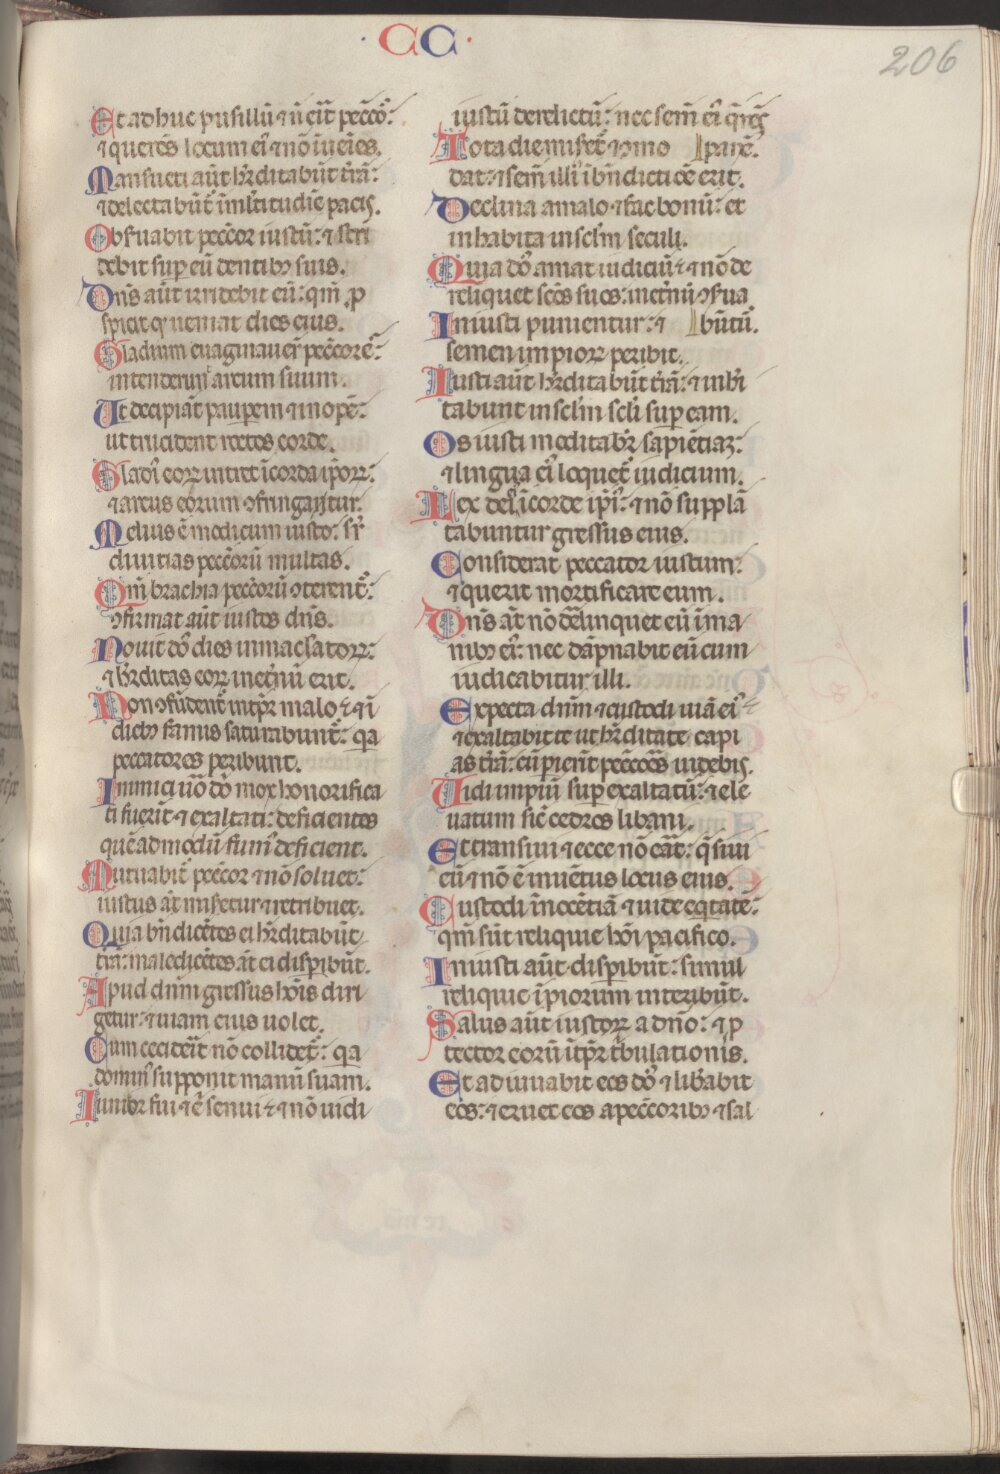 · C C ·
206
Et adhuc pusillũ ⁊ nõ erit pecc̃or̃:
⁊ queres locum eiꝰ ⁊ nõ iñenies.
Mansueti aũt hr̃ditabũt tr̃ã:
⁊ delectabũt̃ ĩ ml̃titudĩe pacis.
Obẜuabit pecc̃or iustũ: ⁊ stri
debit suꝑ eũ dentibꝫ suis.
Dñs aũt irridebit eũ: qm̃ ꝓ
spicit ꝙ ueniat dies eius.
Gladium euaginauer̃ pecc̃ores:
intenderunt arcum suum.
Ut decipiãt pauperem ⁊ inopẽ:
ut trucident rectos corde.
Gladiꝰ eoꝝ intret ĩ corda ip̃oꝝ:
⁊ arcus eorum ꝯfringantur.
Melius ẽ modicum iusto: sr̃
diuitias pecc̃orũ multas.
Qm̃ brachia pecc̃orũ ꝯterent̃:
ꝯfirmat aũt iustos dñs.
Nouit dñs dies inmaclatoꝝ:
⁊ hr̃ditas eoꝝ inet̃nũ erit.
Non ꝯfũdent̃ in tꝑr̃ malo ⁊ ĩ
diebꝫ famis saturabunt̃: qa
peccatores peribunt.
Inimici uõ dñi mox honorifica
ti fuerĩt ⁊ exaltati: deficientes
quẽadmodũ fumꝰ deficient.
Mutuabit̃ pecc̃or ⁊ nõ soluet:
iustus aũt miseretur ⁊ retribuet.
Quia bñdicẽtes ei hr̃ditabũt
tr̃ã: maledicẽtes aũt ei disꝑibũt.
Apud dñm gressus hoĩs diri
getur: ⁊ uiam eius uolet.
Cum ceciderit nõ collidet̃: qa
dominꝰ supponit manũ suam.
Iunior fui ⁊ eĩ senui ⁊ nõ uidi
iustũ derelictũ: nec sem̃ eiꝰ q̃res
Tota die miseret̃ ⁊ ꝯmo panẽ.
dat: ⁊ sem̃ illiꝰ ĩ bñdictiõe erit.
Declina a malo ⁊ fac bonũ: et
inhabita in sclm̃ seculi.
Quia dñs amat iudiciũ ⁊ nõ de
reliquet scõs suos: inet̃nũ ꝯẜua
Iniusti punientur: ⁊ bũtũr.
semen impioꝝ peribit.
Iusti aũt hr̃ditabũt tr̃ã: ⁊ inhĩ
tabunt in sclm̃ scl̃i super eam.
Os iusti meditabĩt̃ sapiẽtiaꝫ:
⁊ lingua eiꝰ loquet̃ iudicium.
Lex dei ĩ corde ip̃iꝰ: ⁊ nõ supplã
tabuntur gressus eius.
Considerat peccator iustum:
⁊ querit mortificare eum.
Dñs aũt nõ derelinquet eũ ĩ ma
nibꝫ eiꝰ: nec dãpnabit eũ cum
iudicabitur illi.
Expecta dñm ⁊ custodi uiã eiꝰ
⁊ exaltabit te ut hr̃ditate capi
as tr̃ã: cũ perier̃t pecc̃ores uidebis.
Uidi impiũ suꝑexaltatũ: ⁊ ele
uatum sic̃ cedros libani.
Et transiui ⁊ ecce nõ erat: q̃siui
eũ ⁊ nõ ẽ inuẽtus locus eius.
Custodi ĩnocẽtiã ⁊ uide eq̃tatẽ:
qm̃ sũt reliquie hoĩ pacifico.
Iniusti aũt disperibũt: simul
reliquie ĩpiorum interibũt.
Salus aũt iustoꝝ a dño: ⁊ ꝓ
tector eorũ ĩ tꝑr̃ t̃bulationis.
Et adiuuabit eos dñs ⁊ libr̃abit
eos: ⁊ eruet eos a pecc̃oribꝫ ⁊ sal